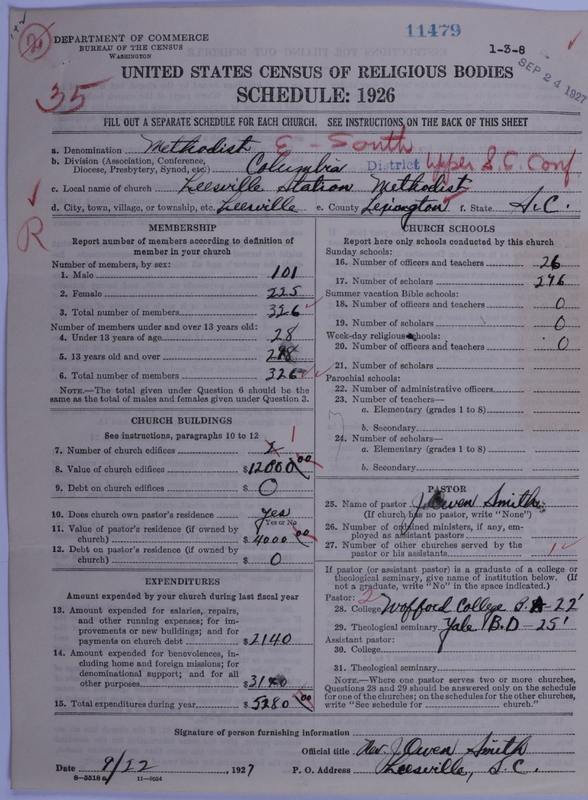 11479
DEPARTMENT OF COMMERCE
BUREAU OF THE CENSUS
WASHINGTON
1-3-8
SEP 24 1927
UNITED STATES CENSUS OF RELIGIOUS BODIES
35
SCHEDULE: 1926
FILL OUT A SEPARATE SCHEDULE FOR EACH CHURCH. SEE INSTRUCTIONS ON THE BACK OF THIS SHEET
a. Denomination Methodist E - South
b. Division (Association, Conference, Diocese, Presbytery, Synod, etc.) Columbia District Upper S.C. Conf
c. Local name of church Leesville Station Methodist
d. City, town, village, or township, etc. Leesville e. County Lexington f. State S.C.
R
MEMBERSHIP
Report number of members according to definition of
member in your church
Number of members, by sex:
1. Male 101
2. Female 225
3. Total number of members 326
Number of members under and over 13 years old:
4. Under 13 years of age 28
5. 13 years old and over 298
6. Total number of members 326
NOTE.—The total given under Question 6 should be the
same as the total of males and females given under Question 3.
CHURCH BUILDINGS
See instructions, paragraphs 10 to 12
7. Number of church edifices 1
8. Value of church edifices $12000 00
9. Debt on church edifices $ 0
10. Does church own pastor's residence? yes
Yes or No
11. Value of pastor's residence (if owned by
church) $4000 00
12. Debt on pastor's residence (if owned by
church) $ 0
EXPENDITURES
Amount expended by your church during last fiscal year
13. Amount expended for salaries, repairs,
and other running expenses; for im-
provements or new buildings; and for
payments on church debt $2140
14. Amount expended for benevolences, in-
cluding home and foreign missions; for
denominational support; and for all
other purposes $3140
15. Total expenditures during year $5280 00
CHURCH SCHOOLS
Report here only schools conducted by this church
Sunday schools:
16. Number of officers and teachers 26
17. Number of scholars 296
Summer vacation Bible schools:
18. Number of officers and teachers 0
19. Number of scholars 0
Week-day religious schools:
20. Number of officers and teachers 0
21. Number of scholars
Parochial schools:
22. Number of administrative officers
23. Number of teachers—
a. Elementary (grades 1 to 8)
b. Secondary
24. Number of scholars—
a. Elementary (grades 1 to 8)
b. Secondary
PASTOR
25. Name of pastor J. Owen Smith
(If church has no pastor, write "None")
26. Number of ordained ministers, if any, em-
ployed as assistant pastors
27. Number of other churches served by the
pastor or his assistants 1
If pastor (or assistant pastor) is a graduate of a college or
theological seminary, give name of institution below. (If
not a graduate, write "No" in the space indicated.)
Pastor: 2
28. College Wofford College A - 22'
29. Theological seminary Yale B.D - 25'
Assistant pastor:
30. College
31. Theological seminary
NOTE.—Where one pastor serves two or more churches,
Questions 28 and 29 should be answered only on the schedule
for one of the churches; on the schedules for the other churches,
write "See schedule for church."
Signature of person furnishing information
Official title Rev. J. Owen Smith
Date 9/22, 1927 P. O. Address Leesville, S.C.
8-5518a 11-9034